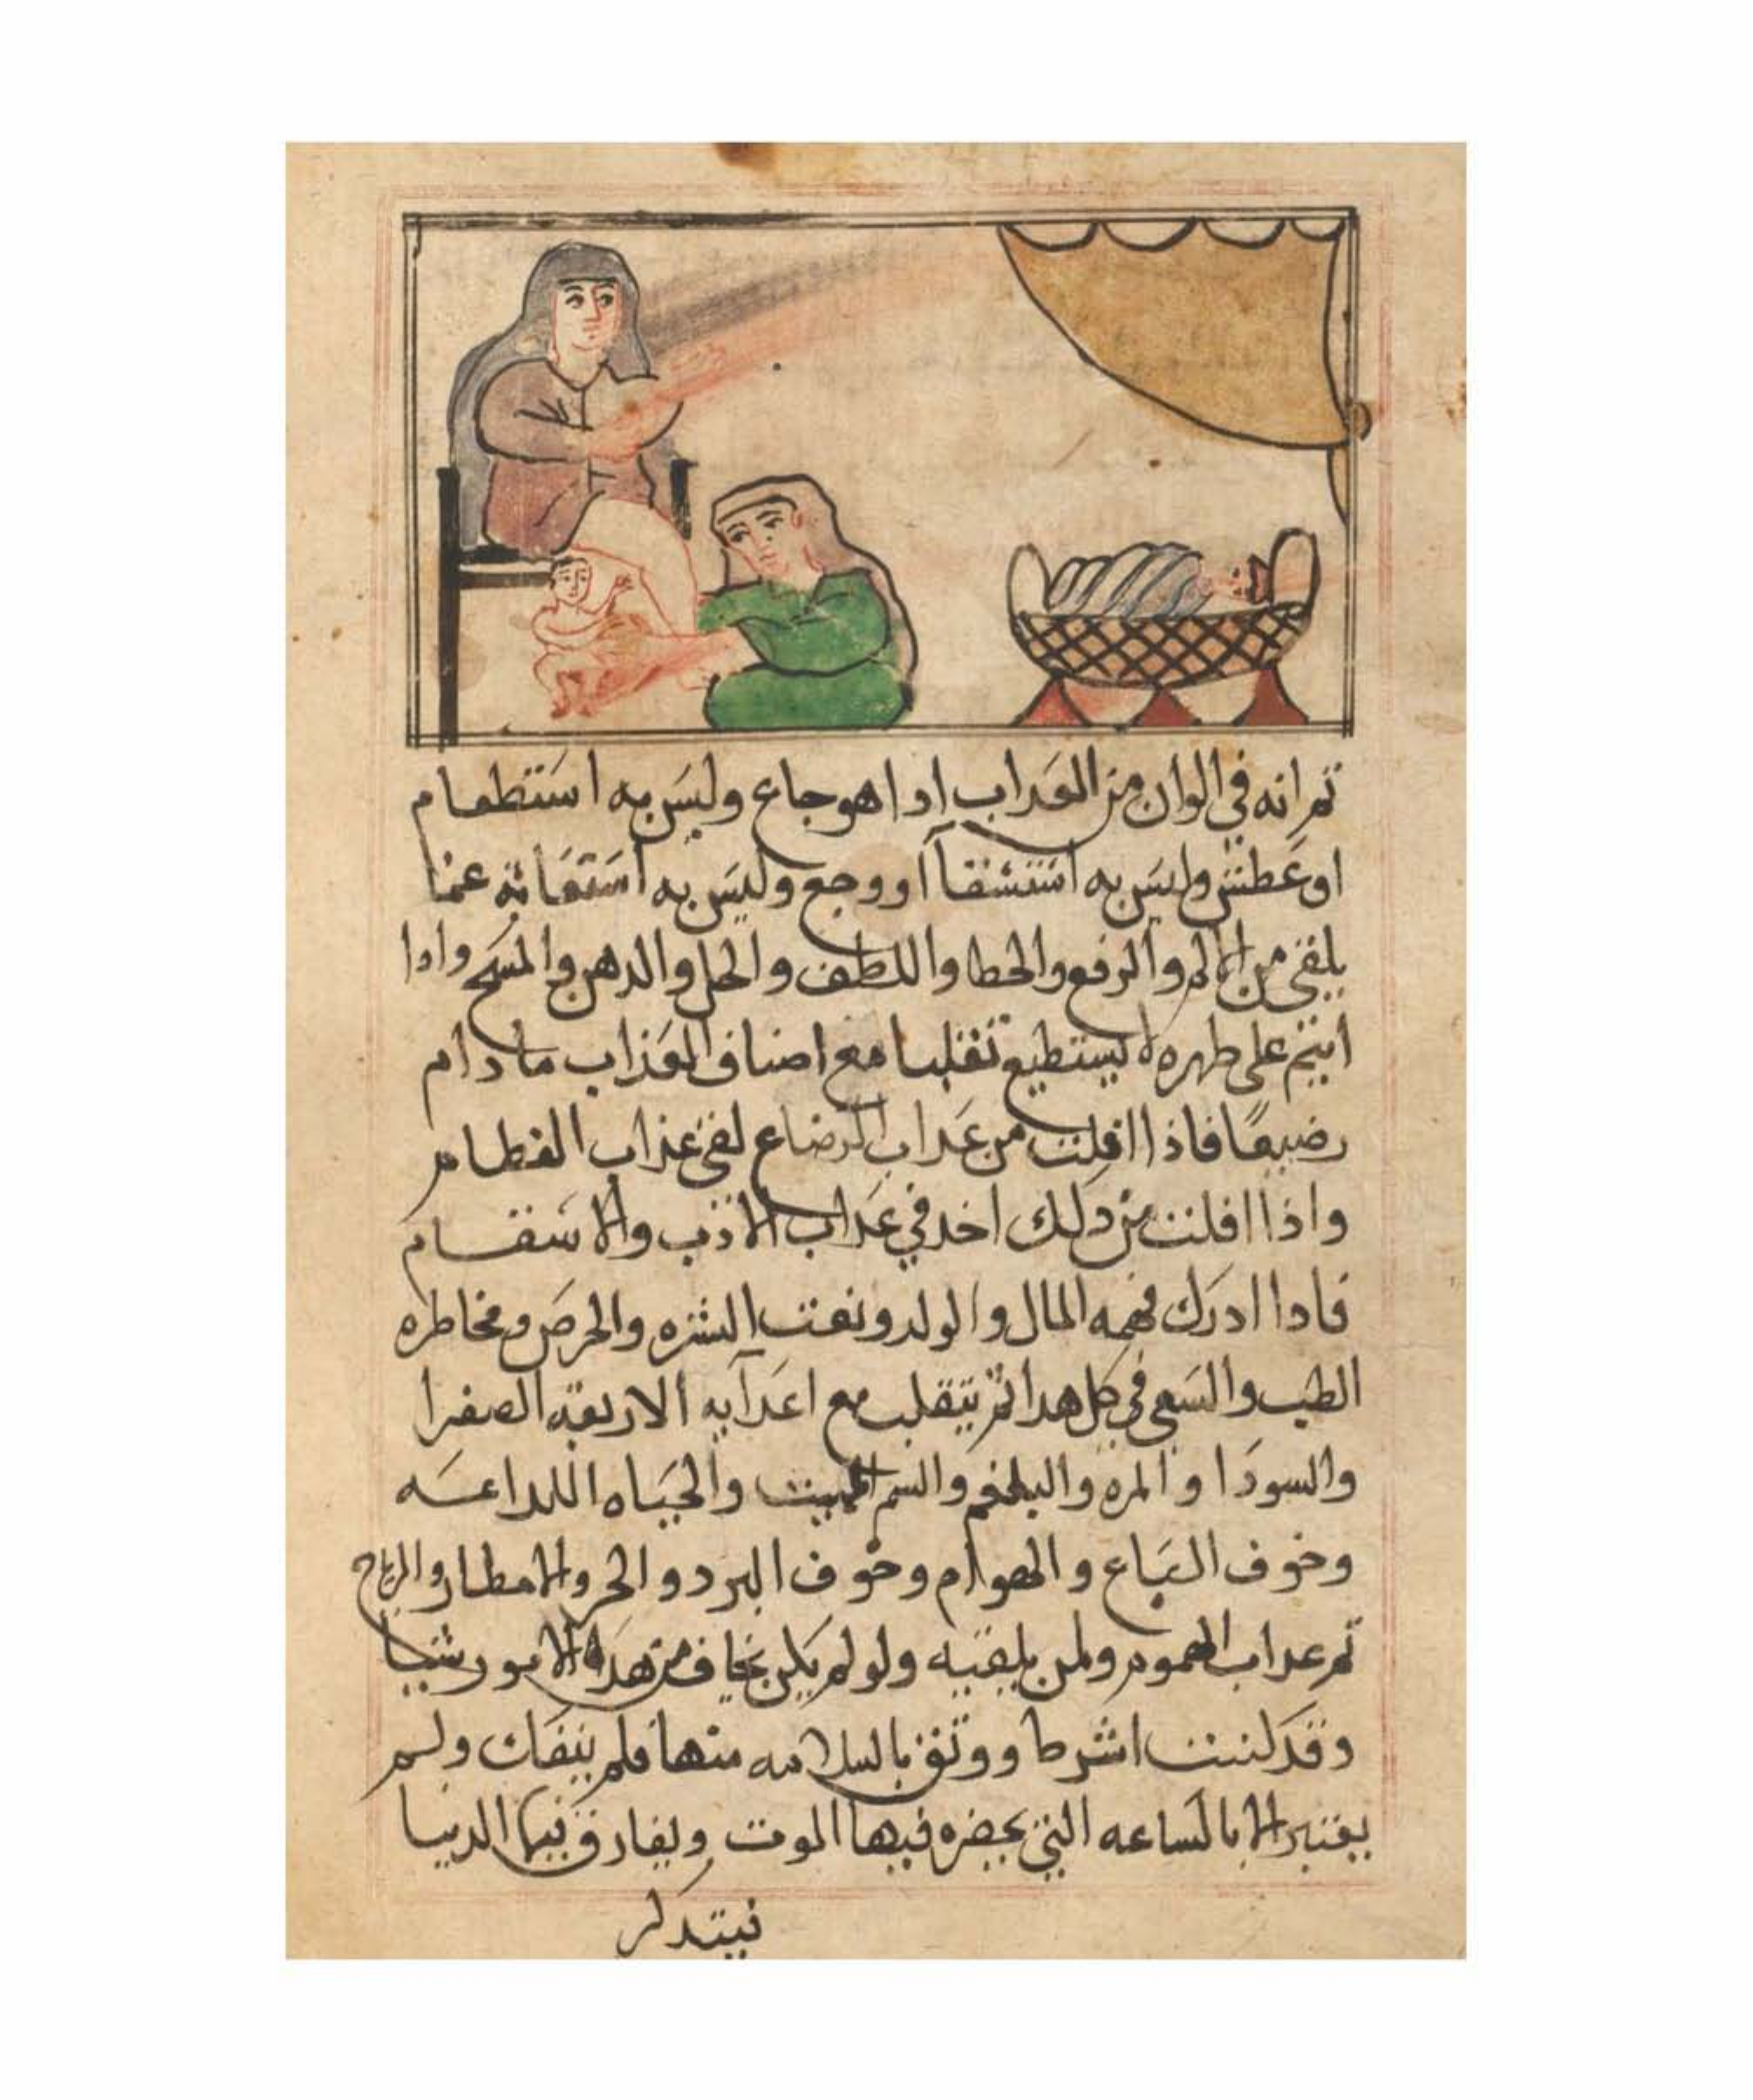 ثم انه في الوان من العداب ادا هو جاع وليس به استطعام
او عطش وليس به استشقا او وجع وليس به استغاثه عما
يلقى من الالم والرفع والحطا واللطف والحل والدهن والمسح وادا
انيم على طهره لا يستطيع تقلبا مع اصناف العذاب ما دام
رضيعًا فاذا افلت من عداب الرضاع لقى عذاب الفطام
واذا افلت من دلك اخد في عداب الاذب والاسقام
فادا ادرك فهمه المال والولد ونعت الشره والحرص ومخاطره
الطيب والسعي في كل هدا ثم يتقلب مع اعدآيه الاربعه الصفرا
والسودا والمره والبلغم والسم المميت والحياه اللداعه
وخوف السباع والهوام وخوف البرد والحر والامطار والرياح
ثم عداب الهموم ولمن يلقيه ولو لم يكن يخاف من هده الامور شيا
وقد اشرط ووثق بالسلامه منها فلم ولم
يعتبر الا بالساعه التي يحضره فيها الموت ويفارق فيها الدنيا
فيتدكر